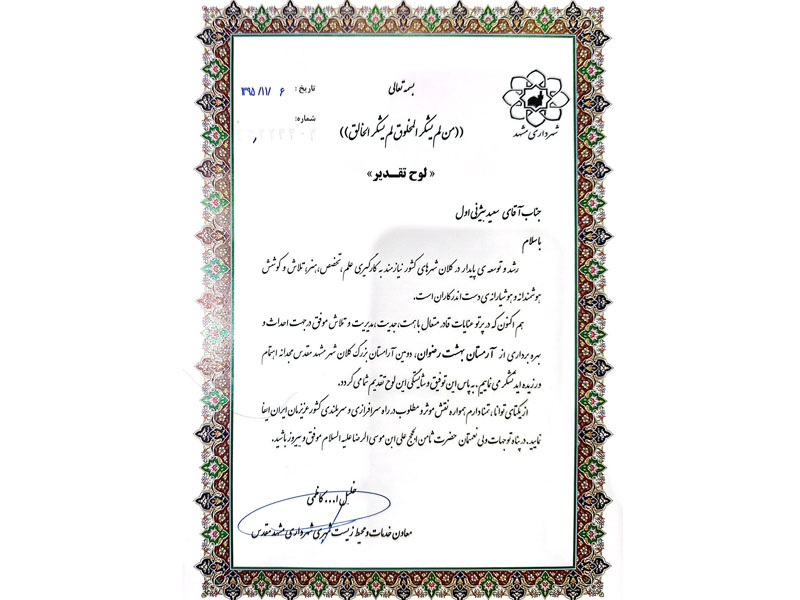 بسمه تعالی
تاریخ: ۱۳۹۵/۱۱/۶
شماره:
شهرداری مشهد
((من لم یشکر المخلوق لم یشکر الخالق))
«لوح تقـدیر»
جناب آقای سعید بیژنی اول
با سلام
رشد و توسعه ی پایدار در کلان شهرهای کشور نیازمند به کارگیری علم، تخصص، هنر، تلاش و کوشش
هوشمندانه و هوشیارانه ی دست اندرکاران است.
هم اکنون که در پرتو عنایات قادر متعال با همت، جدیت، مدیریت و تلاش موفق در جهت احداث و
بهره برداری از آرمستان بهشت رضوان، دومین آرامستان بزرگ کلان شهر مشهد مقدس مجدانه اهتمام
ورزیده اید تشکر می نماییم. به پاس این توفیق و شایستگی این لوح تقدیم شما می گردد.
از یکتای توانا، تمنا دارم همواره نقش موثر و مطلوب در راه سرافرازی و سربلندی کشور عزیزمان ایران ایفا
نمایید. در پناه توجهات ولی نعمتمان حضرت ثامن الحجج علی ابن موسی الرضا علیه السلام موفق و پیروز باشید.
خلیل ا... کاظمی
معاون خدمات و محیط زیست شهری شهرداری مشهد مقدس